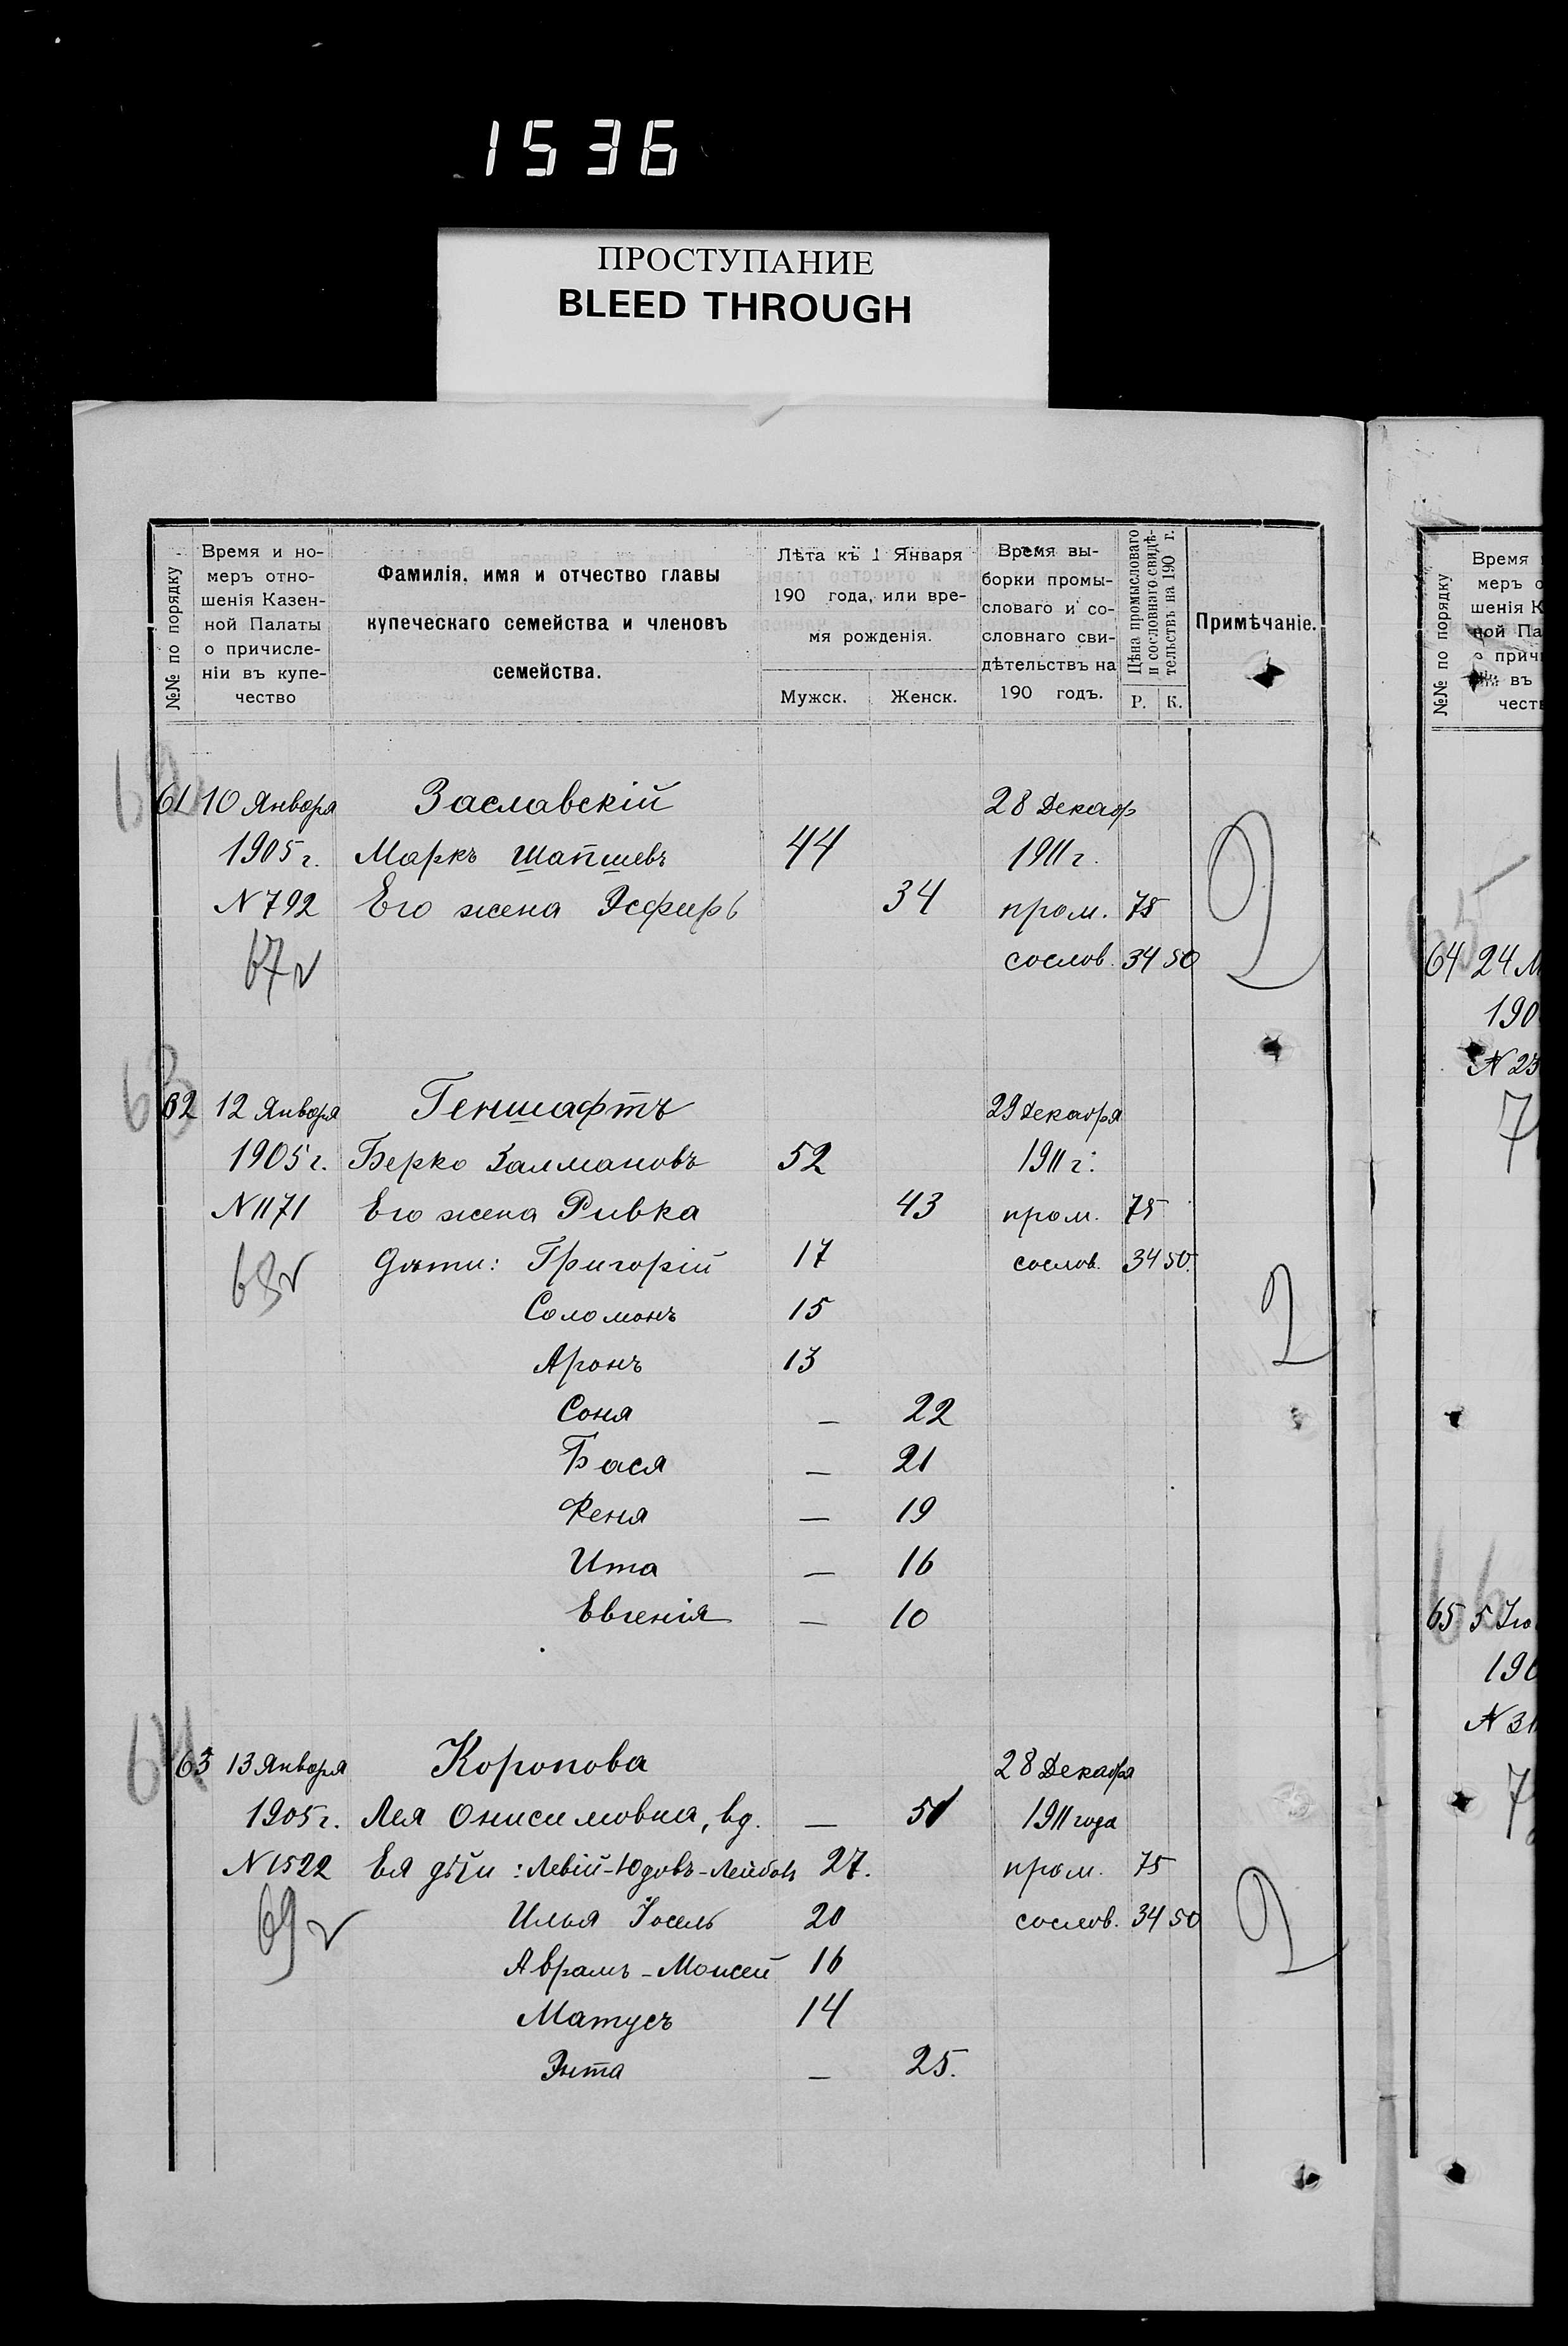 1536
ПРОСТУПАНИЕ
BLEED THROUGH
№№ по порядку
Время и но-
меръ отно-
шенія Казен-
ной Палаты
о причисле-
ніи въ купе-
чество
Фамилія, имя и отчество главы
купеческаго семейства и членовъ
семейства.
Лѣта къ 1 Января
190 года, или вре-
мя рожденія.
Мужск. Женск.
Время вы-
борки промы-
словаго и со-
словнаго сви-
дѣтельствъ на
190 годъ.
Цѣна промысловаго
и сословнаго свидѣ-
тельствъ на 190 г.
Р. К.
Примѣчаніе.
61 10 Января Заславскій 28 Декабр
1905 г. Маркъ Шапшевъ 44 1911 г.
N 792 Его жена Эсфирь 34 пром. 75
67 сослов. 34 50
63
62 12 Января Геншафтъ 29 Декабря
1905 г. Берко Залмановъ 52 1911 г.
N 1171 Его жена Ривка 43 пром. 75
68 Дѣти: Григорій 17 сослов. 34 50.
Соломонъ 15
Аронъ 13
Соня — 22
Бася — 21
Феня — 19
Ита — 16
Евгенія — 10
64
63 13 Января Коропова 28 Декабря
1905 г. Лея Онисимовна, вд. — 51 1911 года
N 1522 Ея дѣти: Левій-Юдовъ-Лейбовъ 27. пром. 75
69 Илья Іосель 20 сослов. 34 50
Аврамъ-Моисей 16
Матусъ 14
Энта — 25.
№№ по порядку
Время
меръ о
шенія К
ной Па
о прич
въ
чест
65
64 24 М
190
N 23
7
66
65 5 Ію
190
N 31
7